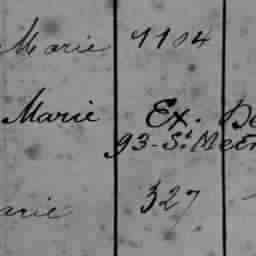 Marie 1104
Marie Ex. De
93-St. Meen
arie 327